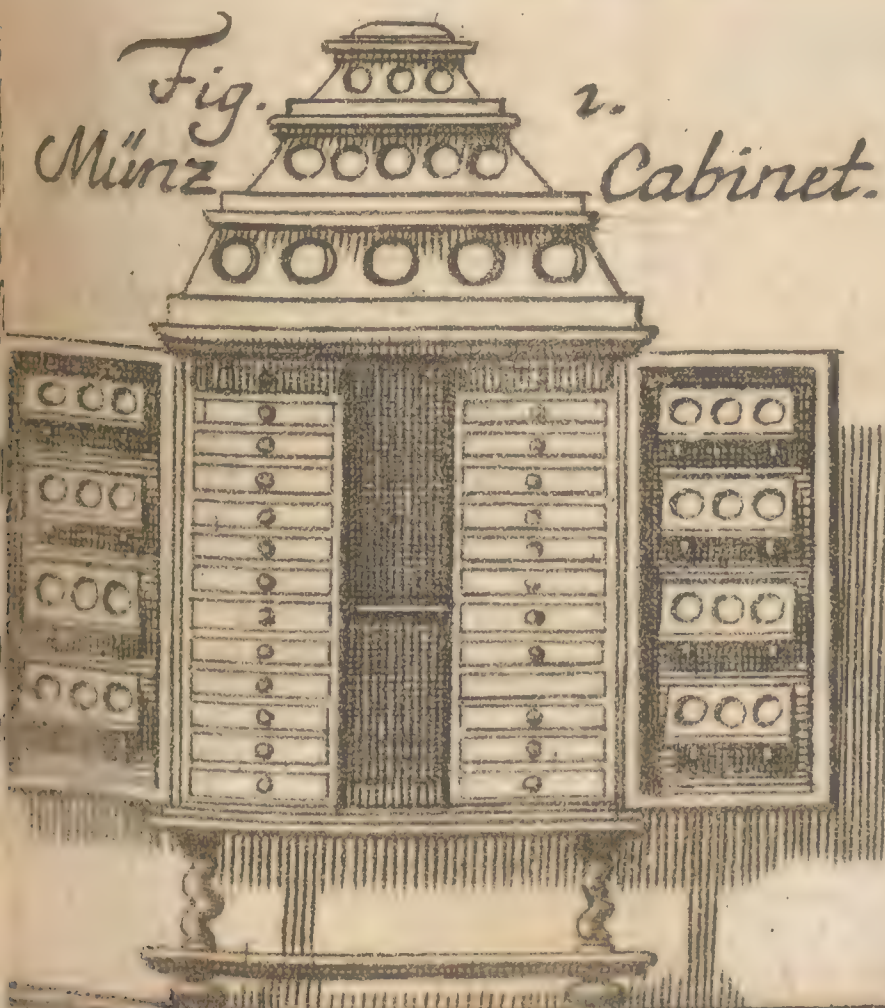 Fig. 2.
Münz Cabinet.